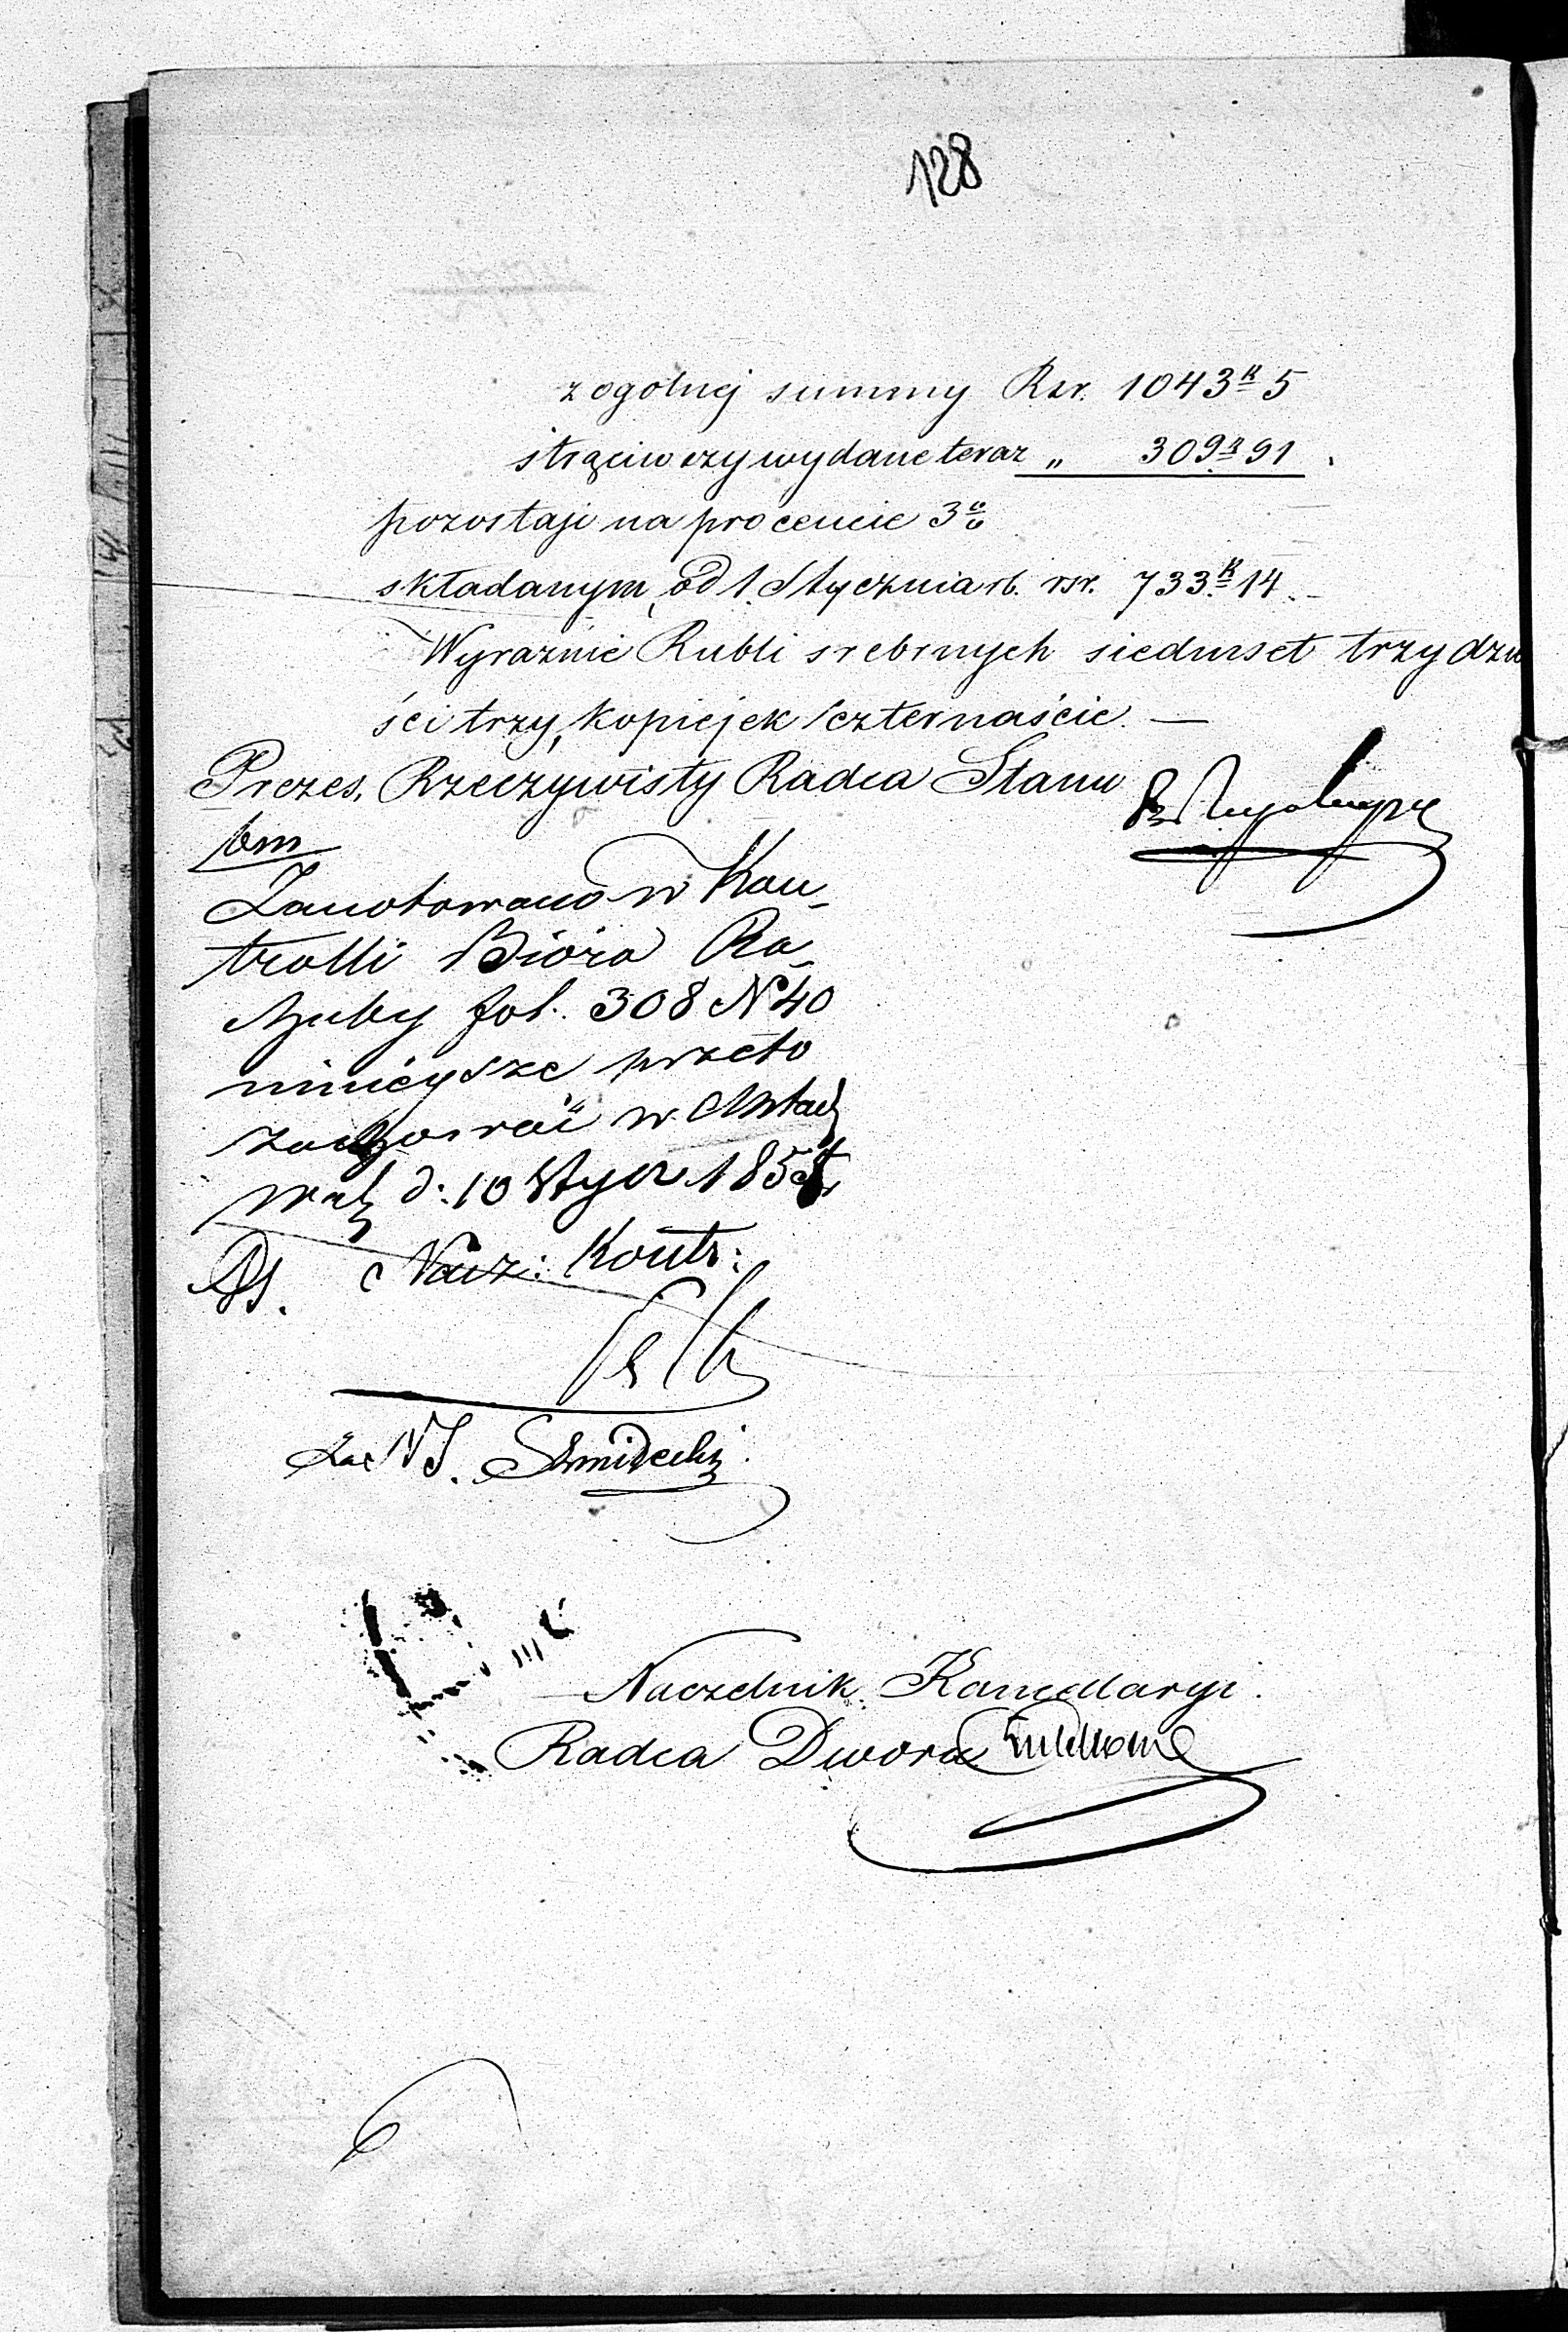 128
z ogolnej summy Rsr. 1043 k 5
strąciwszy wydane teraz „ 309 k 91
pozostaje na procencie 3%
składanym, od 1 Stycznia rb. rsr. 733 k 14.
Wyraznie Rubli srebrnych siedmset trzydzie
ści trzy, kopiejek czternaście. —
Prezes, Rzeczywisty Radca Stanu
Zanotowano w Kon-
trolli Bióra Ra-
chuby fol. 308 N 40
niniéysze przeto
zachować w Aktach
d: 10 Stycz 1858
Nacz: Kontr:
Za NS.
Naczelnik Kancellaryi.
Radca Dworu